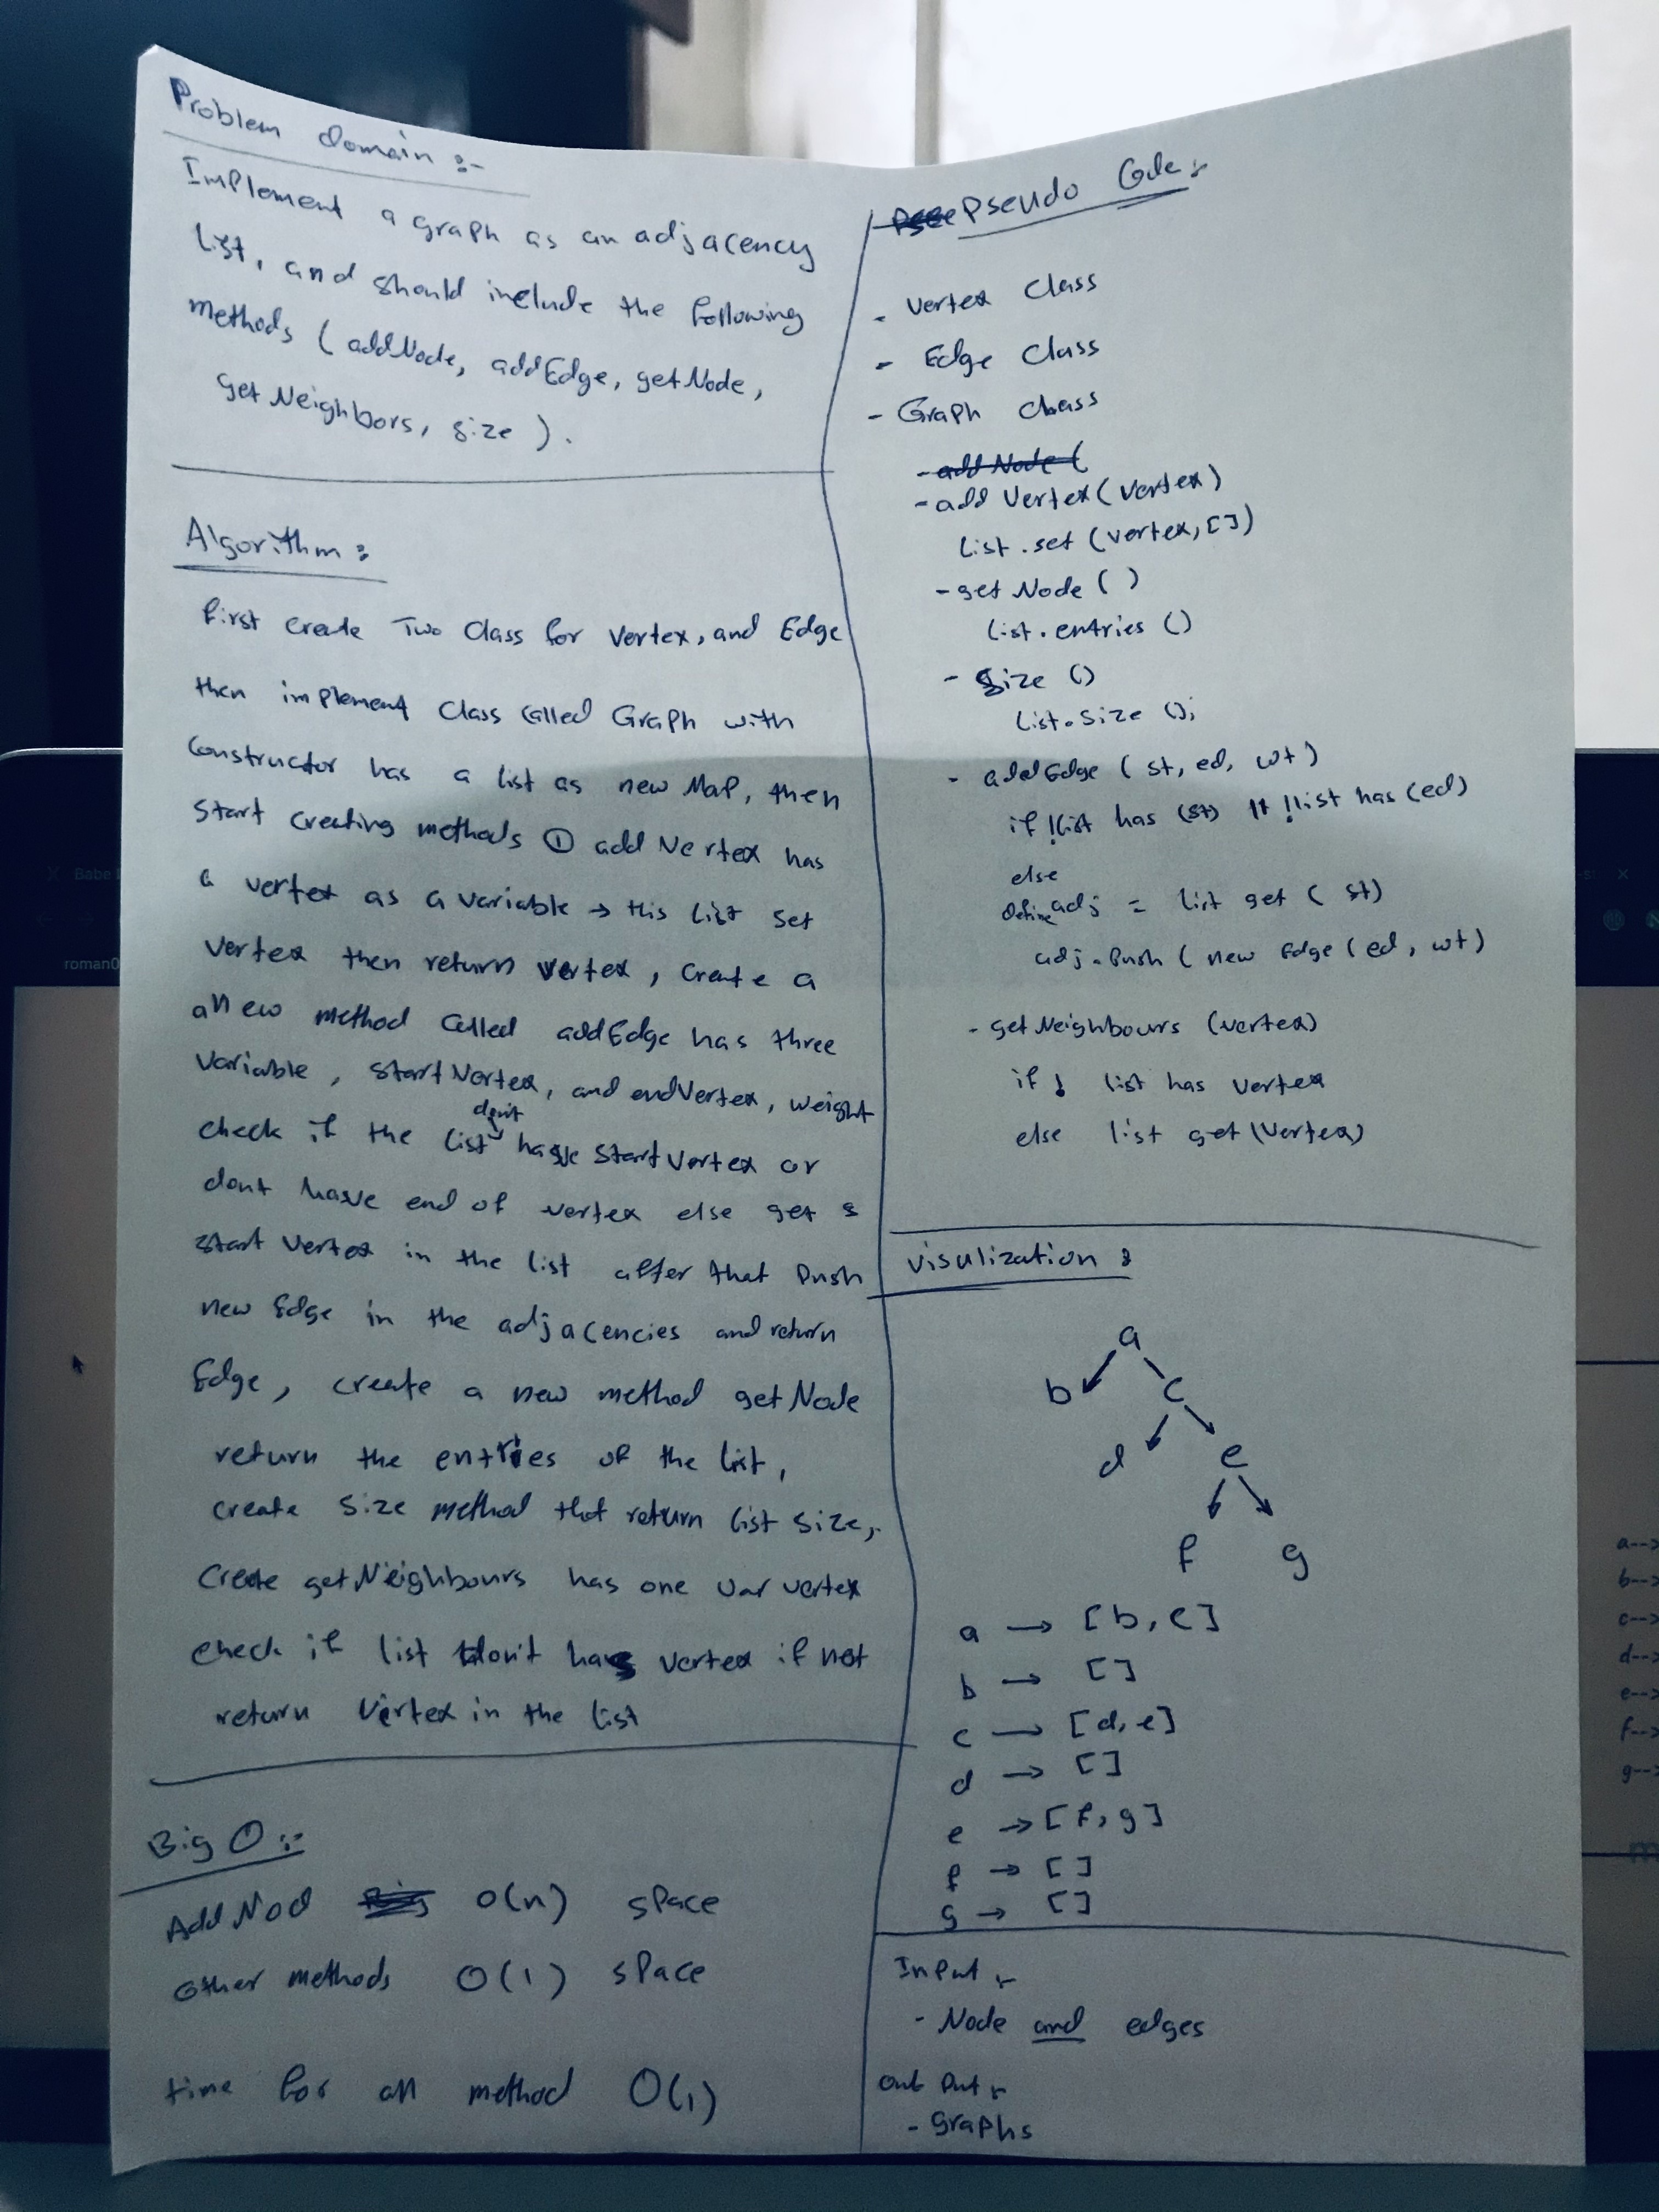 Problem domain :-
Implement a graph as an adjacency
list, and should include the following
methods ( addNode, addEdge, getNode,
get Neighbors, size ).
Algorithm :
first create Two Class for Vertex, and Edge
then implement Class Called Graph with
Constructor has a list as new Map, then
start creating methods ① add Vertex has
a vertex as a variable → this list set
vertex then return vertex, create a
a new method Called addEdge has three
variable, startVertex, and endVertex, weight
check if the list don't have startVertex or
dont have end of vertex else get s
start vertex in the list after that push
new Edge in the adjacencies and return
Edge, create a new method getNode
return the entries of the list,
create size method that return list size,
Create getNeighbours has one var vertex
check if list don't has vertex if not
return Vertex in the list
Big O :-
Add Nod O(n) space
other methods O(1) space
time for all method O(1)
Pseudo Code :-
- Vertex Class
- Edge Class
- Graph class
- add Node (
- add Vertex ( vertex )
List . set ( vertex, [] )
- get Node ( )
List . entries ()
- Size ()
List . Size ();
- addEdge ( st, ed, wt )
if !list has (st) || !list has (ed)
else
define adj = list get ( st )
adj . Push ( new Edge ( ed, wt )
- get Neighbours (vertex)
if ! list has vertex
else list get (Vertex)
visulization :
a
b c
d e
f g
a → [ b, c ]
b → [ ]
c → [ d, e ]
d → [ ]
e → [ f, g ]
f → [ ]
g → [ ]
Input :-
- Node and edges
out put :-
- graphs
Babe
roman0
a-->
b-->
c-->
d-->
e-->
f-->
g-->